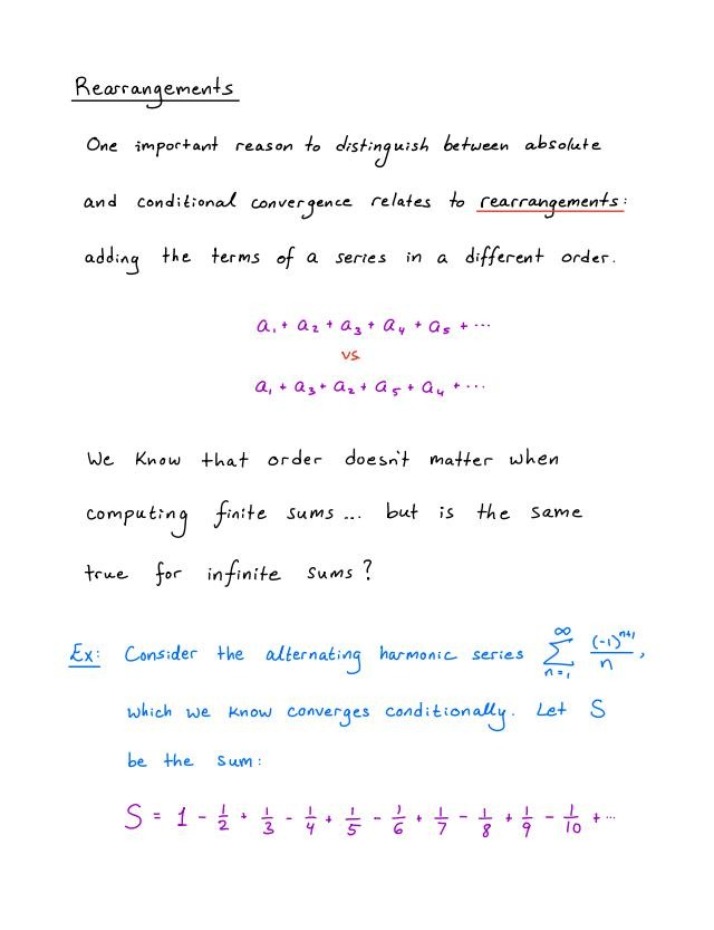 Rearrangements
One important reason to distinguish between absolute
and conditional convergence relates to rearrangements:
adding the terms of a series in a different order.
a₁ + a₂ + a₃ + a₄ + a₅ + ⋯
vs
a₁ + a₃ + a₂ + a₅ + a₄ + ⋯
We know that order doesn't matter when
computing finite sums... but is the same
true for infinite sums?
Ex: Consider the alternating harmonic series ∑_{n=1}^{∞} (-1)^{n+1}/n,
which we know converges conditionally. Let S
be the sum:
S = 1 - 1/2 + 1/3 - 1/4 + 1/5 - 1/6 + 1/7 - 1/8 + 1/9 - 1/10 + ⋯